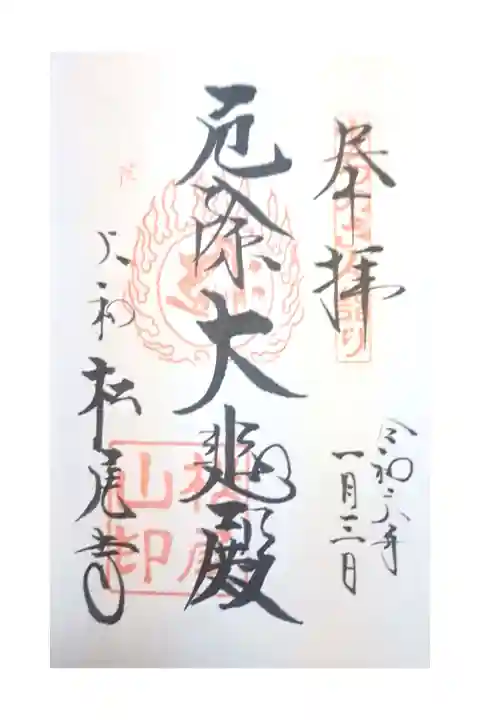 奉拝
令和六年
一月三日
厄除大悲殿
大和
松尾寺